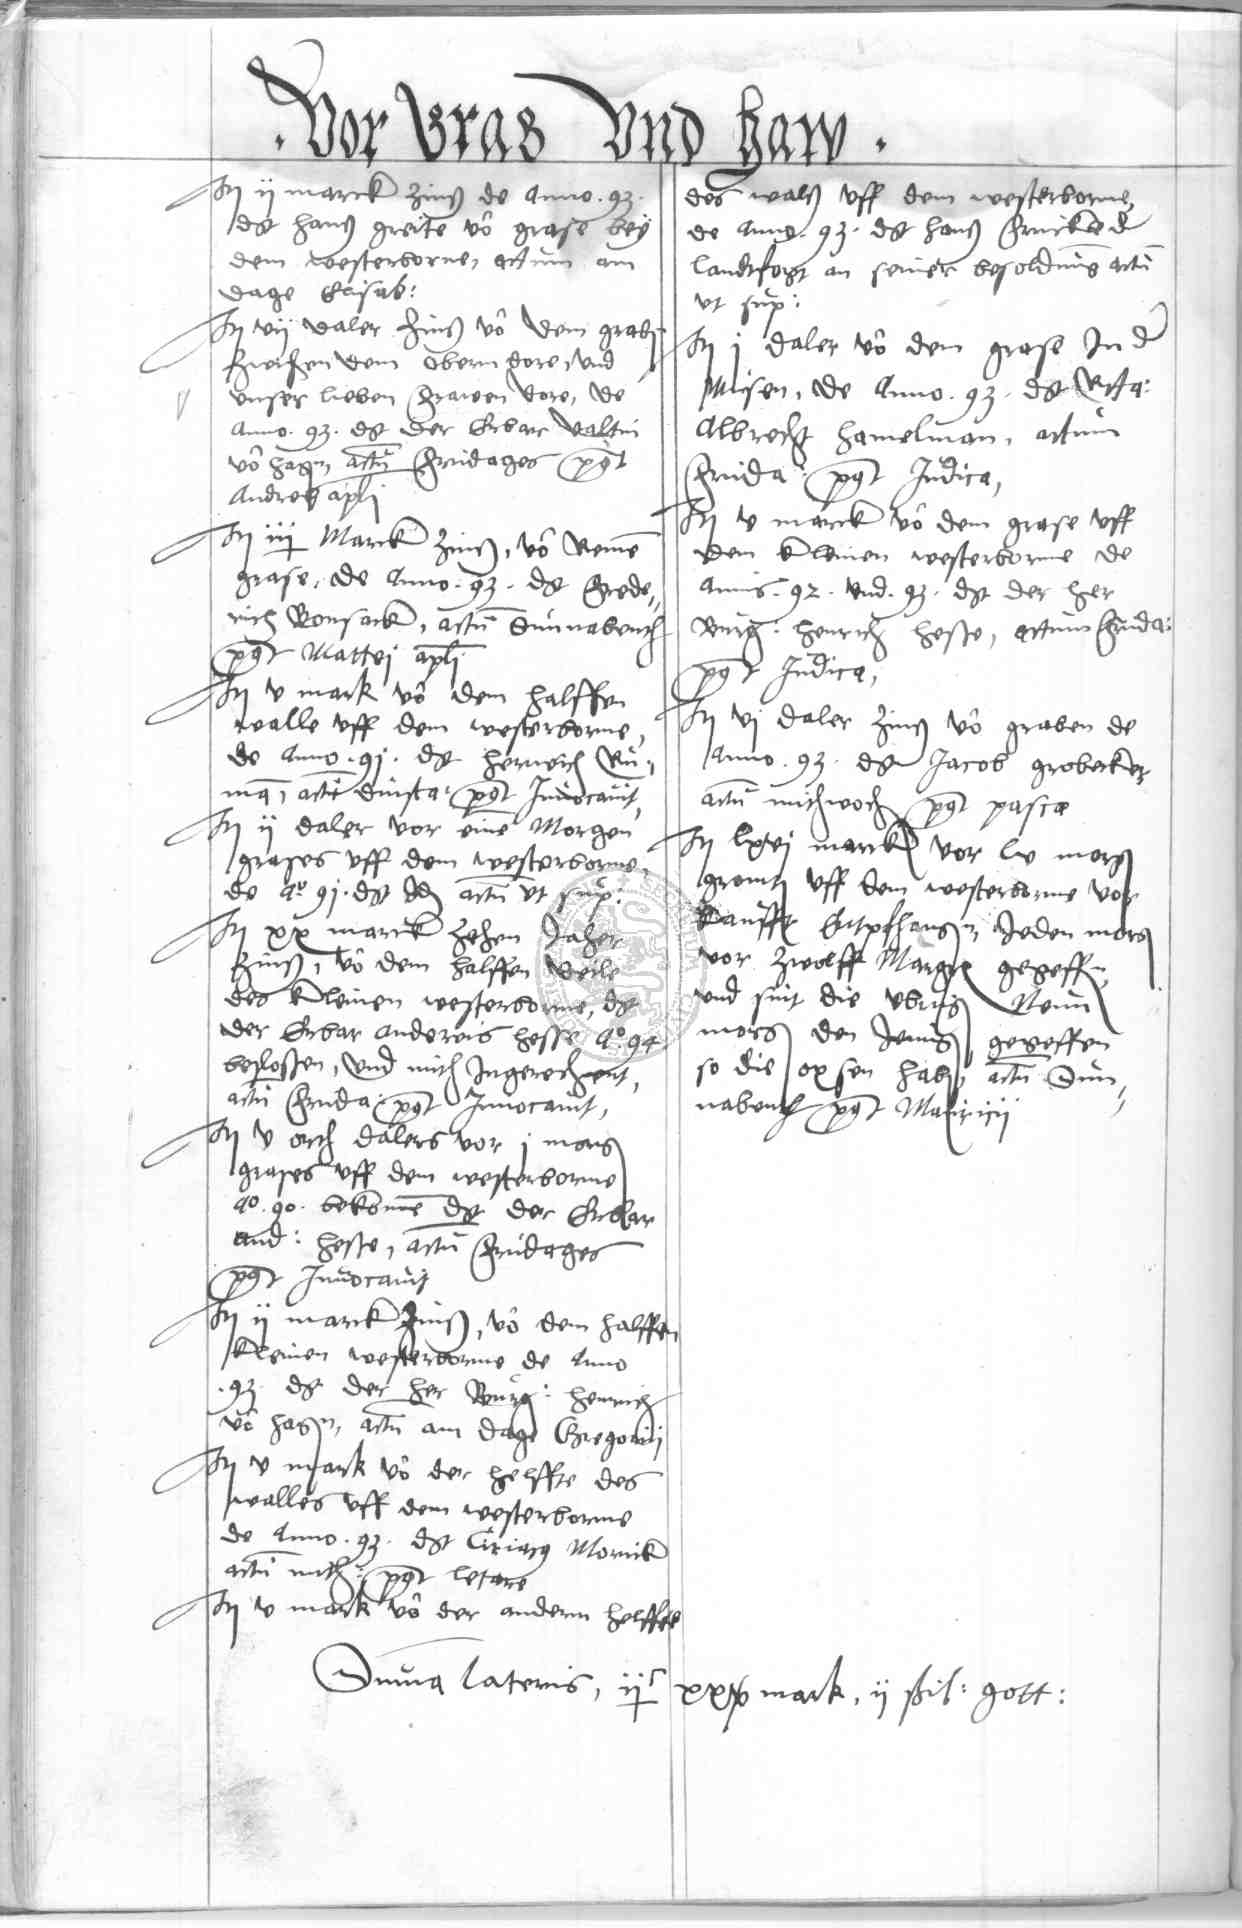 . Vor Gras Vnd Haw .
It ij marck Zinß de Anno . 93 .
dt Hanß greite vô grase bey
dem westerborne, actum am
dage Elisab:
It vij daler Zinß vô dem grabn
zwischen dem Obern dore, vnd
vnser lieben Frawen dore, de
Anno . 93 . dt der Erbar Valtin
vô hagn, actû Fridages post
Andreæ apli
It iiij Marck Zinß, vô
grase, de Anno . 93 . dt Frede-
rich Bonsack, actû Sunnabent
post Mattei apli
It v mark vô dem halffen
walle vff dem westerborne,
de Anno . 91 . dt Heinrich Ru-
man, actû dinsta: post Inuocauit,
It ij daler vor eine Morgen
grases vff dem westerborne,
de Ao 91 . dt actû vt sup:
It xx marck zehen Jaher
Zinß, vô dem halffen deile
des kleinen westerborne, dt
der Erbar Andereis hesse Ao. 94
beslossen, vnd mith Ingerechent,
actû Frida: post Inuocauit,
It v orth dalers vor j morg
grases vff dem westerborne
Ao . 90 . bekome dt der Erbar
And: hesse, actû Fridages
post Inuocauit
It ij marck Zinß, vô dem halffen
kleinen westerborne de Anno
. 93 . dt der her Burg: Henrich
vô hagn, actû am dage Gregorij
It v mark vô der helffte des
walles vff dem westerborne
de Anno . 93 . dt Ciriacus Mornik
actû mith: post letare
It v mark vô der andern helffte
des walß vff dem westerborne,
de Anno . 93 . dt Hanß der
landtfogt an seiner besoldung actû
vt sup:
It j daler vô dem grase In der
Wisen, de Anno . 93 . dt
Albrecht Hamelman, actum
Frida: post Judica,
It v marck vô dem grase vff
dem kleinen westerborne de
Annis . 92 . vnd . 93 . dt der her
Burg: Henrich hesse, actum Frida:
post Judica,
It vj daler Zinß vô graben de
Anno . 93 . dt Jacob grobecker
actû mithwoch post pasce
It lxvj marck vor lv morg
gromt vff dem westerborne vor
kaufft Jeden morg
vor zwolff Margr gegeffn,
vnd sint die vbrig Neun
morg den Jenig gegeffen
so die oxsen habn, actû Sun-
nabent post Mauricij
Suma lateris, ijc xxxv mark, ij ßil: gott: